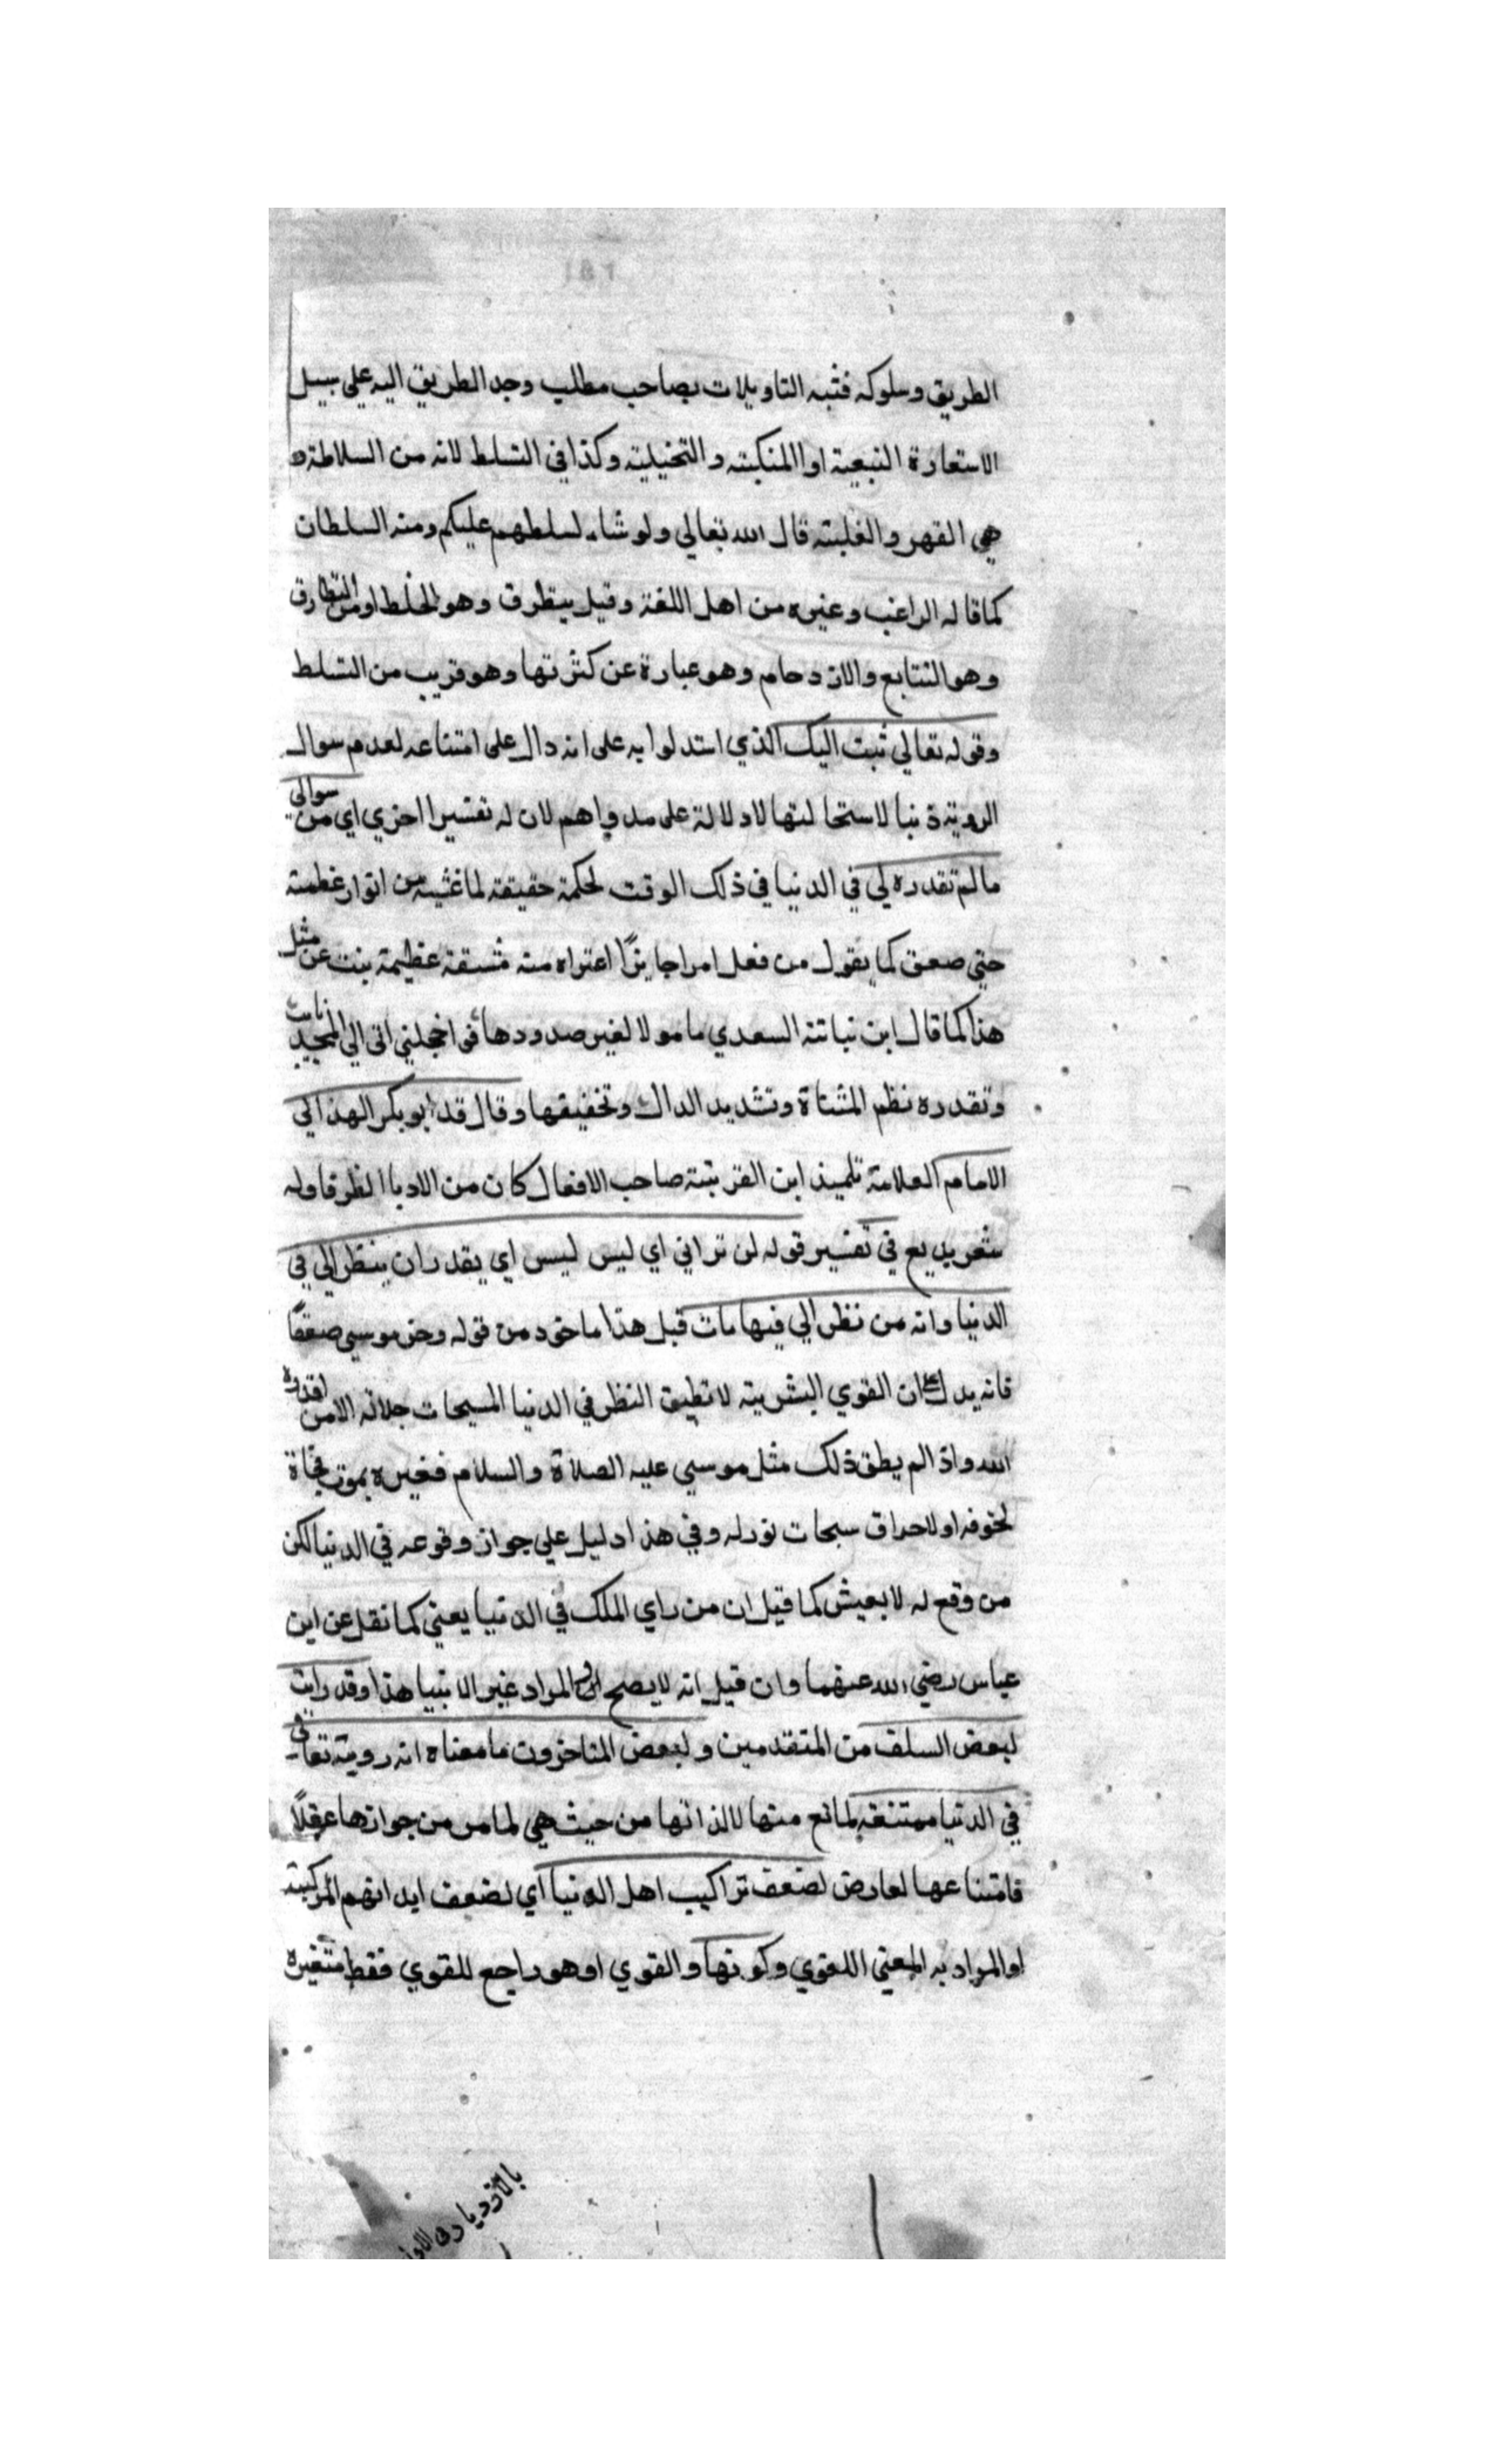 الطريق وسلوكه فشبه التاويلات بصاحب مطلب وجد الطريق اليه علي سبيل
الاستعارة التبعية او المنكبته والتخيلية وكذا في التسلط لانه من السلاطة و
هي القهر والغلبته قال الله تعالي ولو شاء لسلطهم عليكم ومنه السلطان
كما قاله الراغب وغيره من اهل اللغة وقيل يتطرق وهو الخلط او من التطارق
وهو التتابع والازدحام وهو عبارة عن كثرتها وهو قريب من التسلط
وقوله تعالي تبت اليك الذي استدلوا به على انه دال على امتناعه لعدم سوال
الروية دنيا لاستحالتها لا دلالة على مدواهم لان له تفسيرا اخري اي من سوالي
مالم تقدره لي في الدنيا في ذلك الوقت لحكمة حقيقة لما غشيه من انوار عظمته
حتي صعق كما يقول من فعل امرا جايزًا اعتراه منه مشقة عظيمة تبت عن مثل
هذا كما قال ابن نباتة السعدي ما مولا لغير صدودها في اخجلني اني الي المجيد تايب
وتقدره نظم المثناة وتشديد الدال وتخفيفها وقال قد ابو بكر الهذالي
الامام العلامة تلميذ ابن القريتية صاحب الافعال كان من الادبا الظرفا وله
شعر بديع في تفسير قوله لن تراني اي ليس ليس اي يقدر ان ينظر الي في
الدنيا وانه من نظر الي فيها مات قبل هذا ماخود من قوله وخر موسي صعقًا
فانه يدل علي ان القوي البشرية لا تطيق النظر في الدنيا المسبحات جلاله الا من اقدره
الله واذا لم يطق ذلك مثل موسي عليه الصلاة والسلام فغيره يموت فجاة
لخوفه او لاحراق سبحات نور له وفي هذا دليل علي جواز وقوعه في الدنيا لكن
من وقع له لا يعيش كما قيل ان من راي الملك في الدنيا يعني كما نقل عن ابن
عباس رضي الله عنهما وان قيل انه لا يصح او المراد غير الانبيا هذا وقد رايت
لبعض السلف من المتقدمين ولبعض المتاخرون ما معناه انه رويته تعالى
في الدنيا ممتنعة لمانع منها لا لذاتها من حيث هي لما مر من جوازها عقلًا
فامتناعها لعارض لضعف تراكيب اهل الدنيا اي لضعف ابدانهم المركبة
او المراد به المعني اللغوي وكونها والقوي او هو راجع للقوي فقط متغيرة